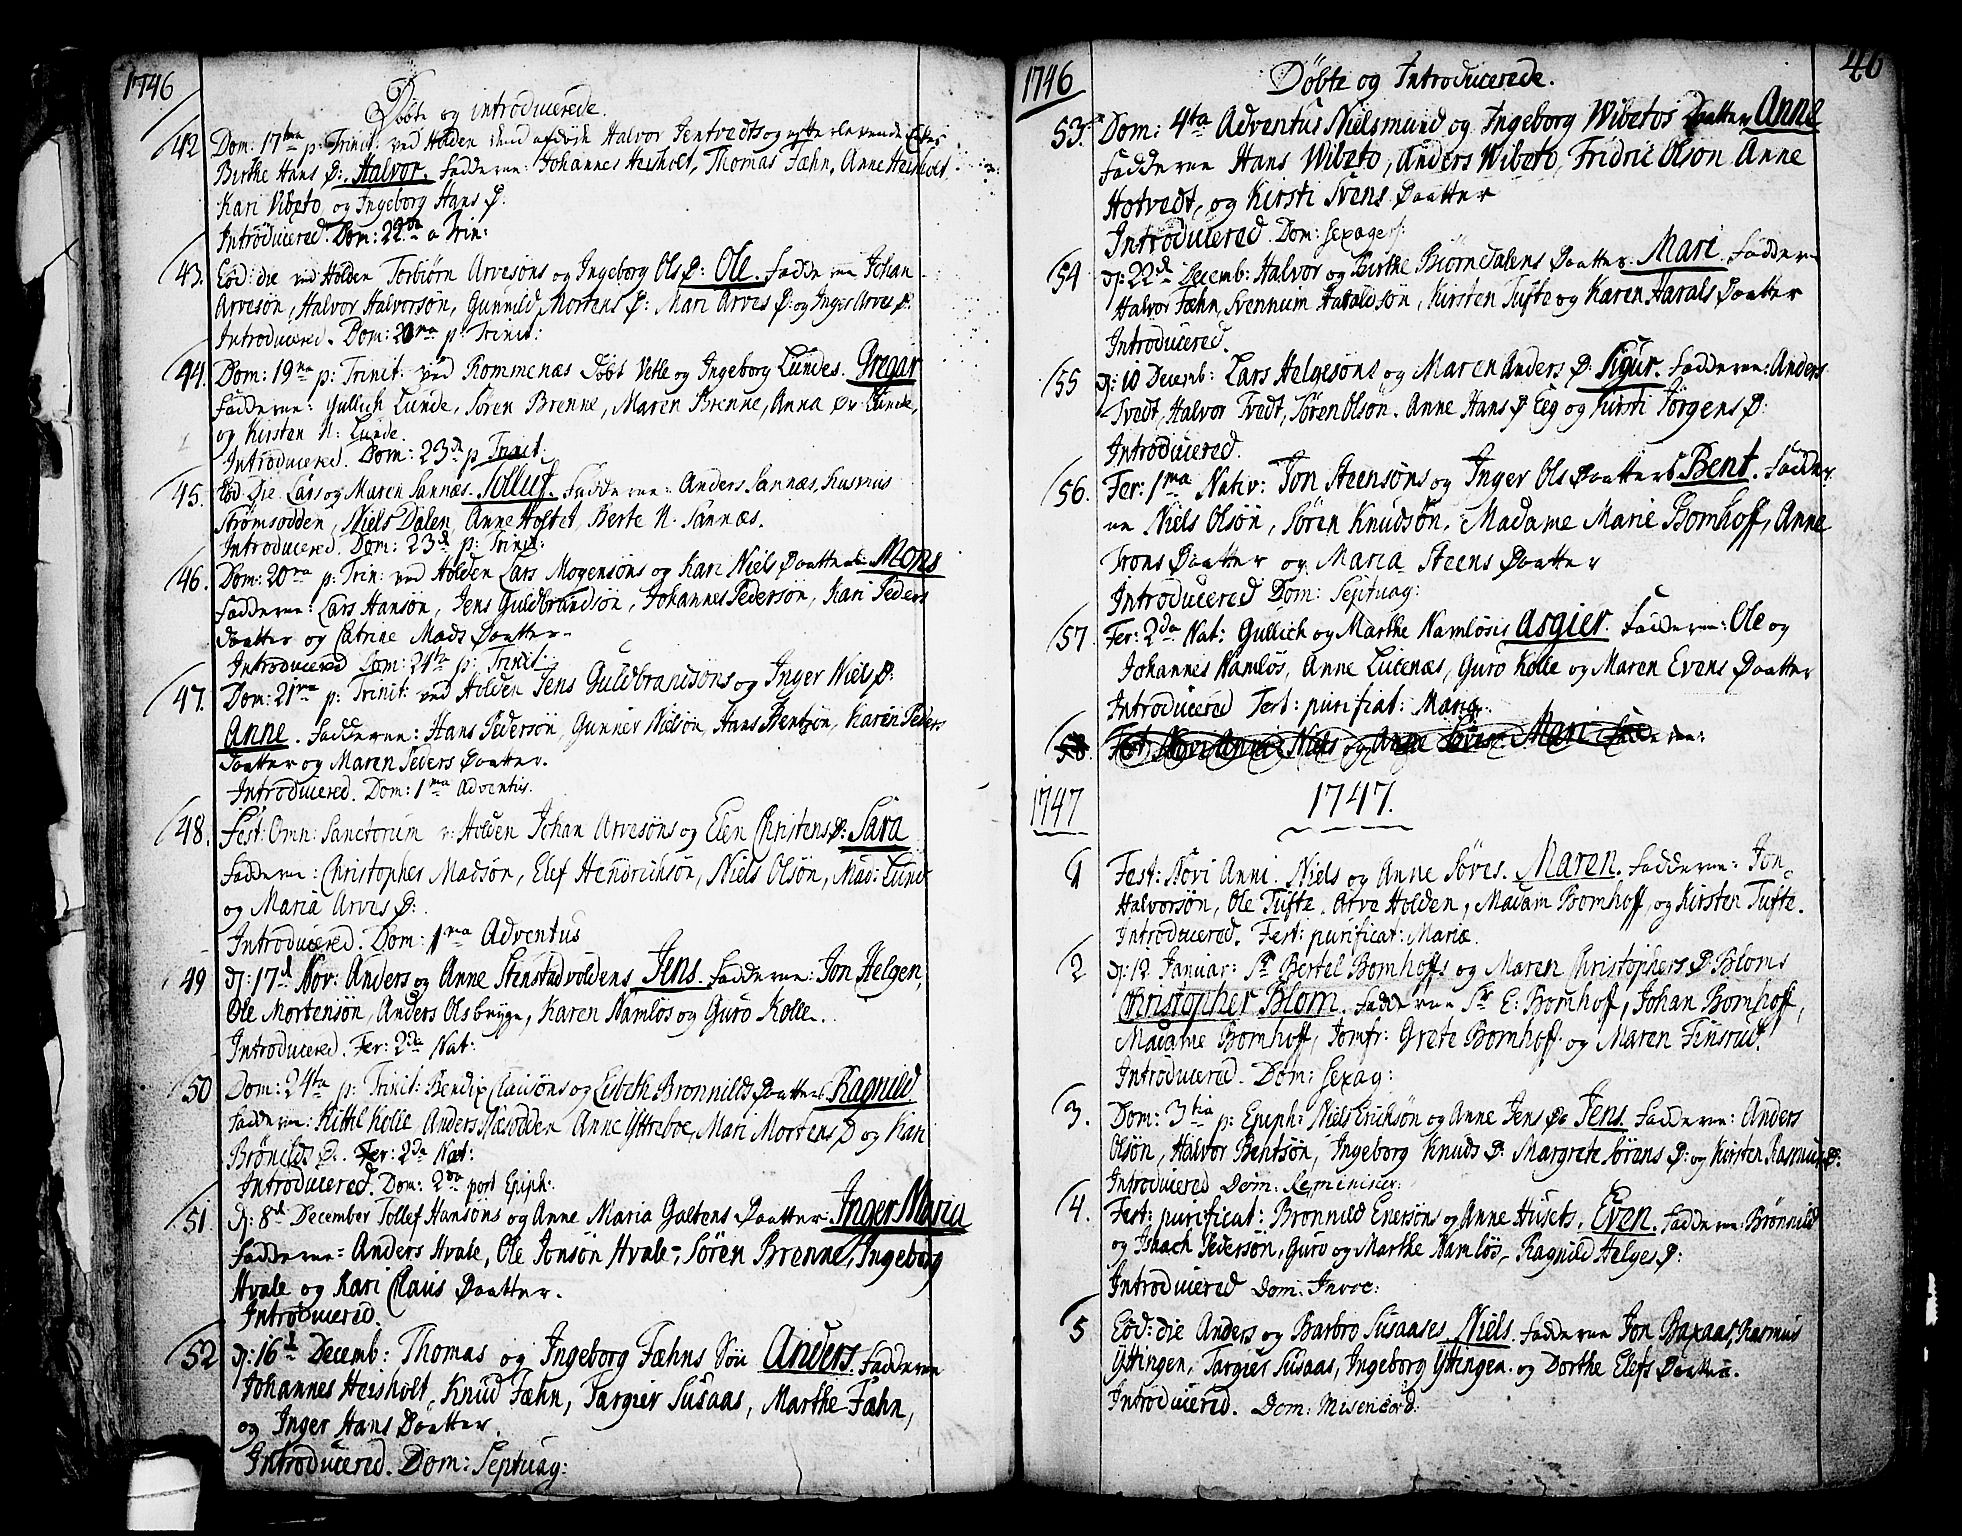 1746
Döbte og introducerede.
42 Dom: 17tna p: Trinit: ved Holden Halvor Jentvedts og efterlevende
Birthe Hans D: Halvor. Fadderne: Johannes Heisholt, Thomas Fæhn, Anne Heisholt,
Kari Vibeto, og Ingeborg Hans D:
Introducered. Dom: 22da a Trin:
43. Eod: die ved Holden Torbiørn Arvesöns og Ingeborg Ols D: Ole. Fadderne Johan
Arvesön, Halvor Halvorsön, Gunnild Mortens D: Mari Arves D: og Inger Arves D:
Introducered. Dom: 20ma p: Trinit:
44. Dom: 19na p: Trinit: ved Rommenæs Döbt Vetle og Ingeborg Lundes. Gregar
Fadderne: Gullich Lunde, Sören Brenne, Maren Brenne, Anna Lunde,
og Kirsten N: Lunde.
Introducered. Dom: 23d p Trinit:
45. Eod Die Lars og Maren Sannæs. Tolluf. Fadderne: Anders Sannæs, Rasmus
Strømsodden, Niels Dalen, Anne Hoftet, Berte N. Sannæs.
Introducered. Dom: 23d p: Trinit:
46. Dom: 20ma p: Trin: ved Holden Lars Mogensöns og Kari Niels Daatters Mons
Fadderne: Lars Hansön, Jens Guldbrandsön, Johannes Pedersön, Kari Peders
Daatter og Catrine Mads Daatter.
Introducered Dom: 24ta p: Trinit:
47. Dom: 21ma p: Trinit: ved Holden Jens Guldbrandsöns og Inger Niels D:
Anne. Fadderne: Hans Pedersön, Gunner Nielsön, Hans Bentsön, Karen Peders
Daatter og Maren Peders Daatter.
Introducered. Dom: 1ma Adventus.
48. Fest: Omn: Sanctorum v: Holden Johan Arvesöns og Elen Christens D: Sara
Fadderne: Christopher Madsön, Elef Hendrichsön, Niels Olsön, Mad: Lund
og Maria Arves D:.
Introducered. Dom: 1ma Adventus
49 D: 17d Nov: Anders og Anne Stenstadvoldens Jens. Fadderne: Jon Helgen,
Ole Mortensön, Anders Olsbrygge, Karen Namløs og Guro Kolle.
Introducered. Fer: 2da Nat:
50 Dom: 24ta p: Trinit: Bendix Clausöns og Lisbeth Bronnilds Daatters Ragnild
Fadderne: Kittil Kolle Anders Næsodden Anne Ytterboe, Mari Mortens D og Kari
Brönilds D:. Fer: 2da Nat:
Introducered. Dom: 2da post Epiph:
51. D: 8d December Tollef Hansöns og Anne Maria Goetens Daatter: Inger Maria
Fadderne: Anders Hvale, Ole Jonsön Hvale, Sören Brenne, Ingeborg
Hvale og Kari Claus Daatter.
Introducered.
52 D: 16d Decemb: Thomas og Ingeborg Fæhns Sön Anders. Fadderne
Johannes Heisholt, Knud Fæhn, Targier Susaas, Marthe Fæhn,
og Inger Hans Daatter.
Introducered. Dom: Septuag:
1746
Döbte og Introducerede.
46
53. Dom: 4ta Adventus Nielsmund og Ingeborg Wibetos Daatter Anne
Fadderne Hans Wibeto, Anders Wibeto, Fridric Olson Anne
Hotvedt, og Kirsti Svens Daatter
Introducered. Dom: Sexages:
54 D: 22d Decemb: Halvor og Birthe Biørndalens Daatter. Mari. Fadderne
Halvor Fæhn, Svennum Haraldsön, Kirsten Tufte og Karen Harals Daatter
Introducered.
55 D: 10 Decemb: Lars Helgesöns og Maren Anders D: Sigur. Fadderne: Anders
Tvedt, Halvor Tvedt, Sören Olsön. Anne Hans D Eeg og Kirsti Jörgens D:
Introducered.
56. Fer: 1ma Nativ: Jon Steensöns og Inger Ols Daatters Bent. Fadder
ne Niels Olsön, Sören Knudsön. Madame Marie Bomhoff, Anne
Trons Daatter og Maria Steens Daatter
Introducered Dom: Septuag:
57. Fer: 2da Nat: Gullich og Marthe Namlösis Asgier. Fadderne: Ole og
Johannes Namløs, Anne Lucenæs, Guro Kolle og Maren Evens Daatter
Introducered Fest: purificat: Mariæ.
58. Fest: Novi Anni Niels og Anne Söres. Mari Fadderne:
1747 1747.
1 Fest: Novi Anni. Niels og Anne Söres. Maren. Fadderne: Jon
Halvorsön, Ole Tufte. Arve Holden, Madam Bomhoff, og Kirsten Tufte.
Introducered. Fest: purificat: Mariæ.
2 D: 12 Januar: Sr Bertel Bomhoffs og Maren Christophers D: Bloms
Christopher Blom. Fadderne Sr E: Bomhoff, Johan Bomhoff,
Madame Bomhoff, Jomfr: Grete Bomhoff og Maren Finsrud.
Introducered. Dom: Sexag:
3. Dom: 3tia p: Epiph: Niels Erichsön og Anne Jens D: Jens. Fadderne: Anders
Olsön, Halvor Bentsön, Ingeborg Knuds D: Margrete Sörens D: og Kirsten Rasmus D:
Introducered Dom: Reminiscer:
4. Fest: purificat: Bronnild Enersöns og Anne Husets. Even. Fadderne: Brönnild
og Isaach Pedersön, Guro og Marthe Namløs, Ragnild Helges D:
Introducered Dom: Invoc:
5 Eod: die Anders og Barbro Susaases Niels. Fadderne Jon Baxaas, Rasmus
Yttingen, Targier Susaas, Ingeborg Yttingen. og Dorthe Elefs Daatter.
Introducered. Dom: Misericord: